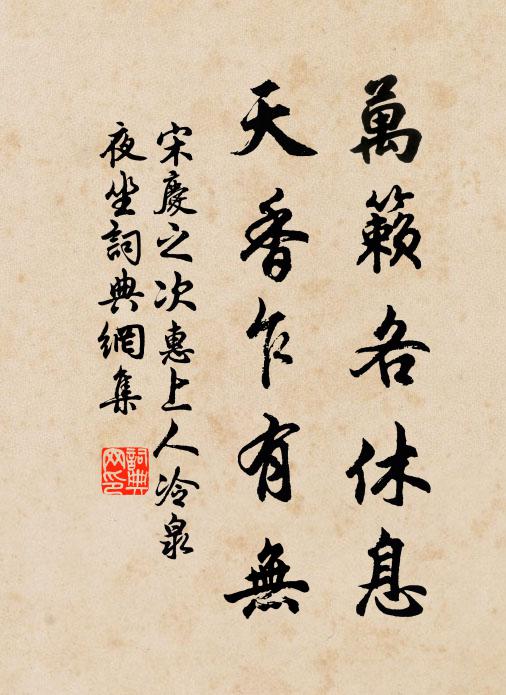 萬籟各休息
天香乍有無
宋慶之次惠上人冷泉
夜坐詞典網集
詞典網印